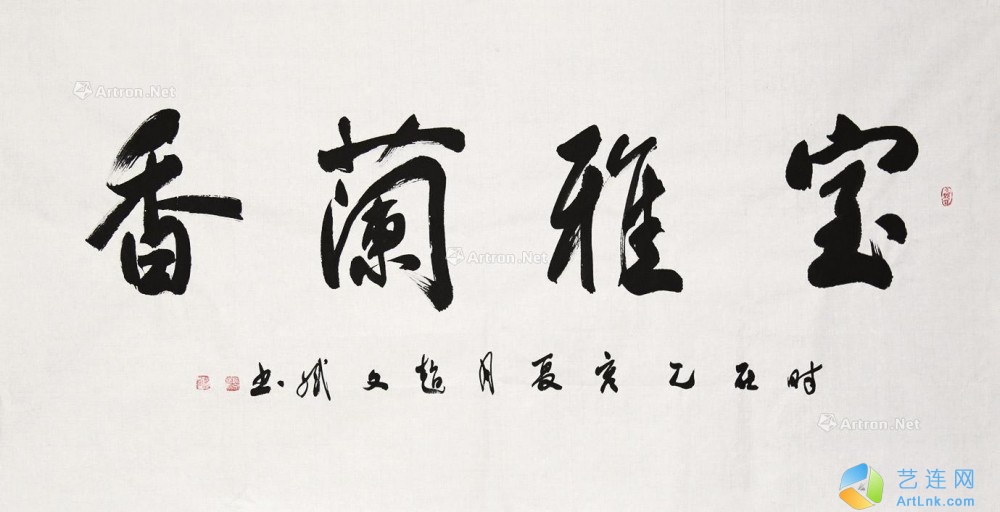 室雅蘭香
时在乙亥夏月趙文书
Artron.Net
Artron.Net
Artron.Net
艺连网
ArtLnk.com